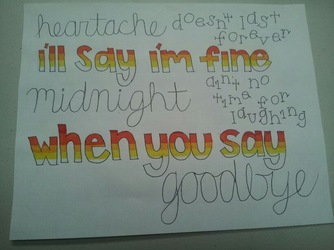 heartache doesn't last
forever
i'll say i'm fine
midnight ain't no
time for
laughing
when you say
goodbye